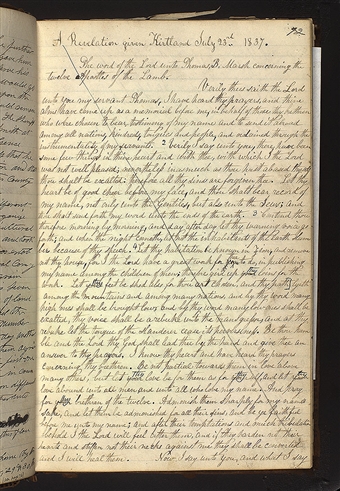 72
A Revelation given Kirtland July 23rd 1837.
The word of the Lord unto Thomas, B. Marsh concerning the
twelve Apostles of the Lamb.
Verily thus saith the Lord
unto you my servant Thomas, I have heard thy prayers, and thine
alms have come up as a memorial before me, in behalf of those thy brethren
who were chosen to bear testimony of my name and to send it abroad
among all nations, kindreds, tongues and people, and ordained through the
instrumentality of my servants. Verily I say unto you, there have been
some few things in thine heart and with thee, with which I the Lord
was not well pleased; nevertheless inasmuch as thou hast abased thyself
thou shalt be exalted: therefore all thy sins are forgiven thee. Let thy
heart be of good cheer before my face, and thou shalt bear record of
my name, not only unto the Gentiles, but also unto the Jews; and
thou shalt send forth my word unto the ends of the earth. Contend thou
therefore morning by morning, and day after day let thy warning voice go
forth; and when the night cometh, let not the inhabitants of the Earth slum-
ber because of thy speech. Let thy habitation be known in Zion, and remove
not thy house, for I the Lord have a great work for you to do, in publishing
my name among the children of men, therefore gird up your loins for the
work. Let your feet be shod also for thou art chosen, and thy path lyeth
among the mountains and among many nations, and by thy word many
high ones shall be brought low; and by thy word many low ones shall be
exalted. thy voice shall be a rebuke unto the transgressor, and at thy
rebuke let the tongue of the slanderer cease its perverseness. Be thou hum-
ble and the Lord thy God shall lead thee by the hand and give thee an
answer to thy prayers. I know thy heart and have heard thy prayers
concerning thy brethren. Be not partial towards them in love above
many others, but let your love be for them as for yourself, and let your
love abound unto all men and unto all who love my name. And pray
for your brethren of the twelve. Admonish them sharply for my name's
sake, and let them be admonished for all their sins, and be ye faithful
before me unto my name; and after their temptations and much tribulation
behold I the Lord will feel after them, and if they harden not their
hearts and stiffen not their necks against me they shall be converted
and I will heal them. Now I say unto you, and what I say